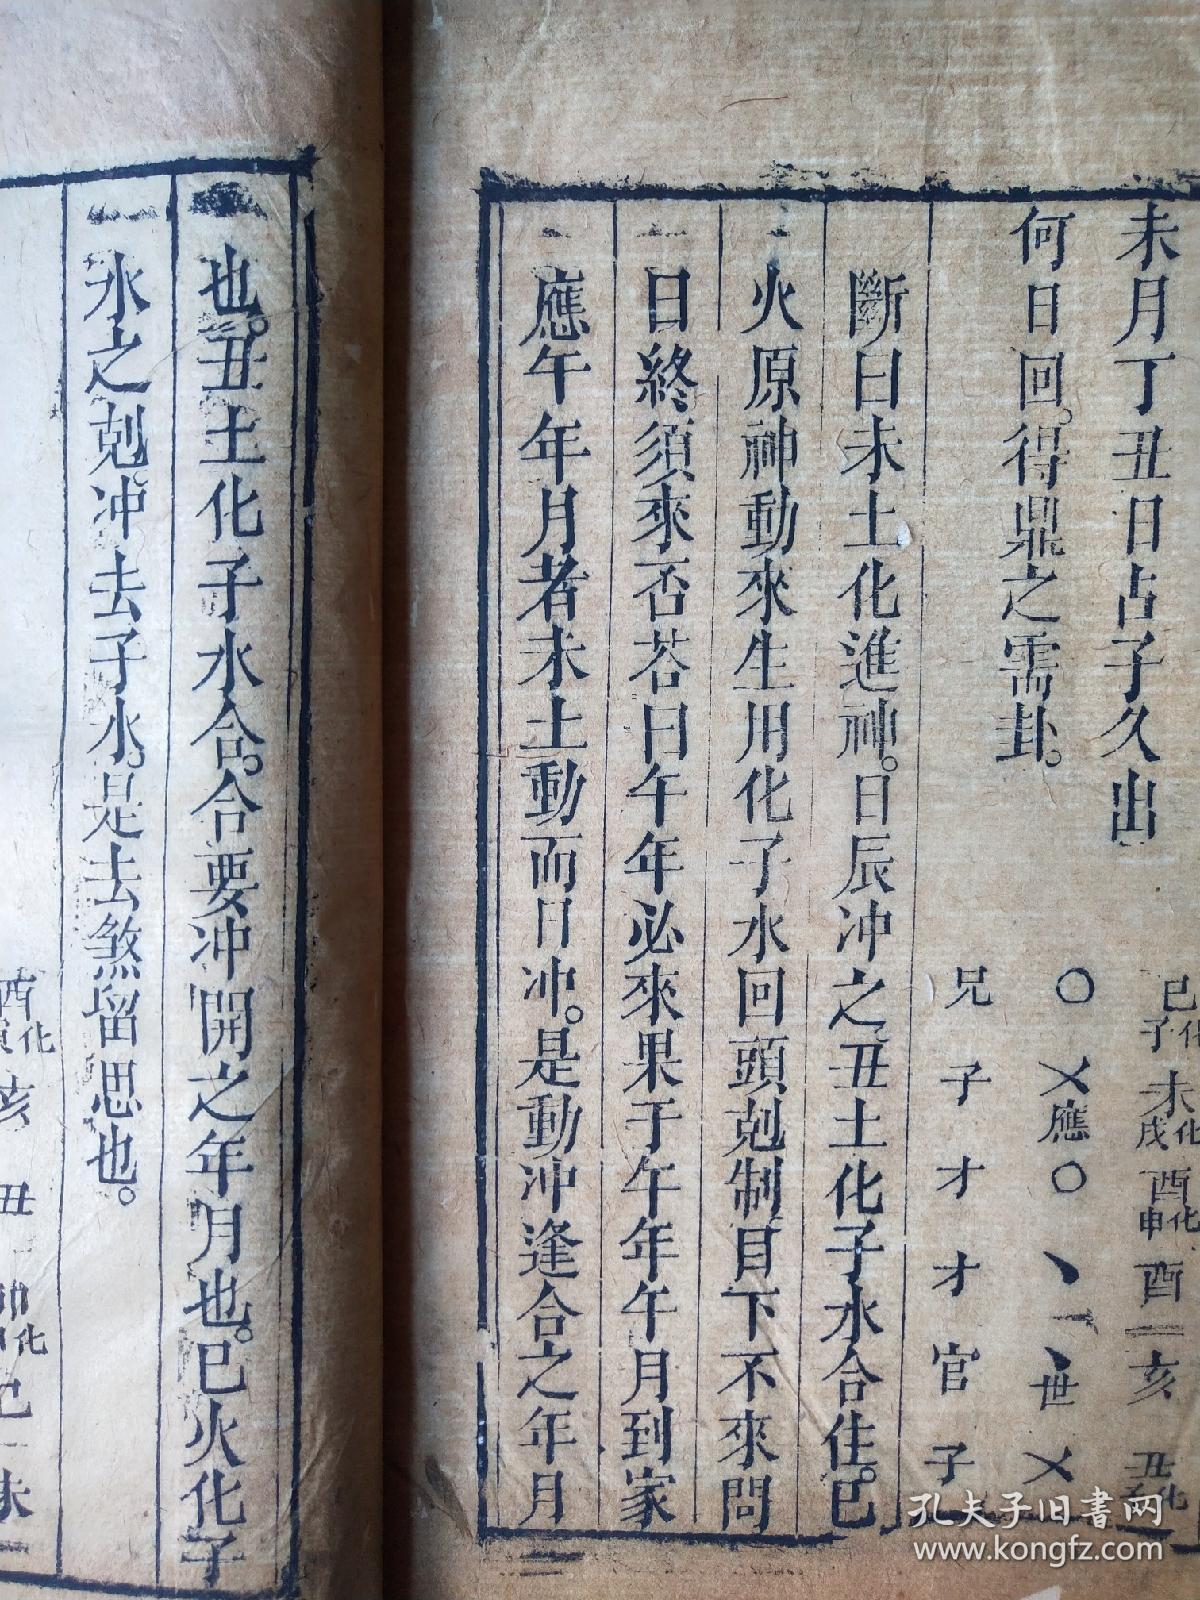 未月丁丑日占子久出
巳化子 未化戌 酉化申 酉 亥 丑化子
何日回。得鼎之需卦。
〇 㐅應 〇 、 、世 㐅
兄 子 才 才 官 子
斷曰未土化進神。日辰冲之丑土化子水合住。巳
火原神動來生用化子水回頭剋制目下不來問
日終須來否荅曰午年必來果于午年午月到家
應午年月者未土動而日冲。是動冲逢合之年月
也。丑土化子水合。合要冲開之年月也。巳火化子
水之剋。冲去子水。是去煞留恩也。
孔夫子旧書网
www.kongfz.com